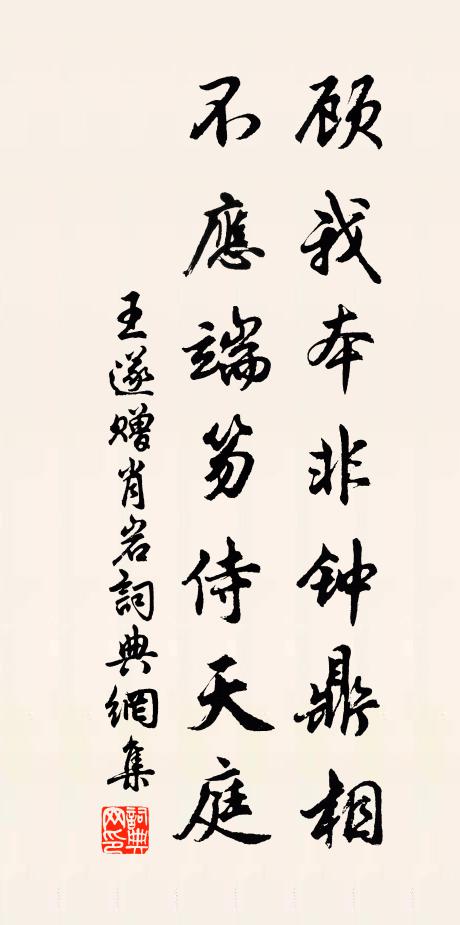 顾我本非钟鼎相
不應端笏侍天庭
王遂赠肖岩詞典網集
詞典网印